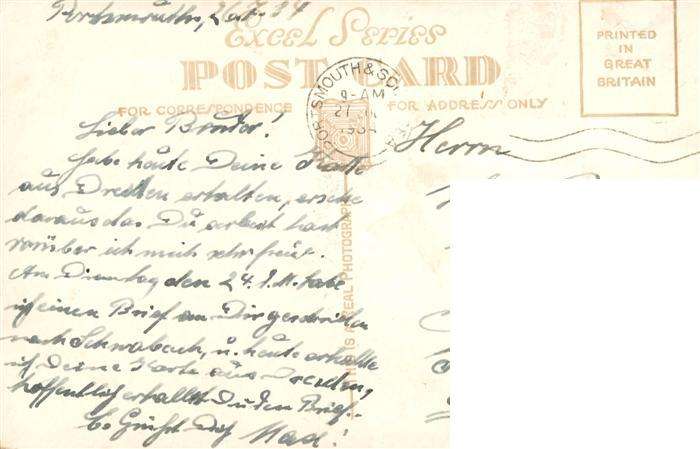 Portsmouth, 26.7.34
Excel Series
POST CARD
PRINTED
IN
GREAT
BRITAIN
FOR CORRESPONDENCE
FOR ADDRESS ONLY
PORTSMOUTH & SO
9-AM
27
1934
Lieber Bruder!
Herrn
Habe heute Deine Karte
aus Dresden erhalten, ersehe
daraus das Du arbeit hast
worüber ich mich sehr freue.
Am Dienstag den 24. d. M. habe
ich einen Brief an Dir geschrieben
nach Schwabach, u. heute erhalte
ich Deine Karte aus Dresden,
hoffentlich erhällst Du den Brief.
Es Grüßt Dich Max!
THIS IS A REAL PHOTOGRAPH